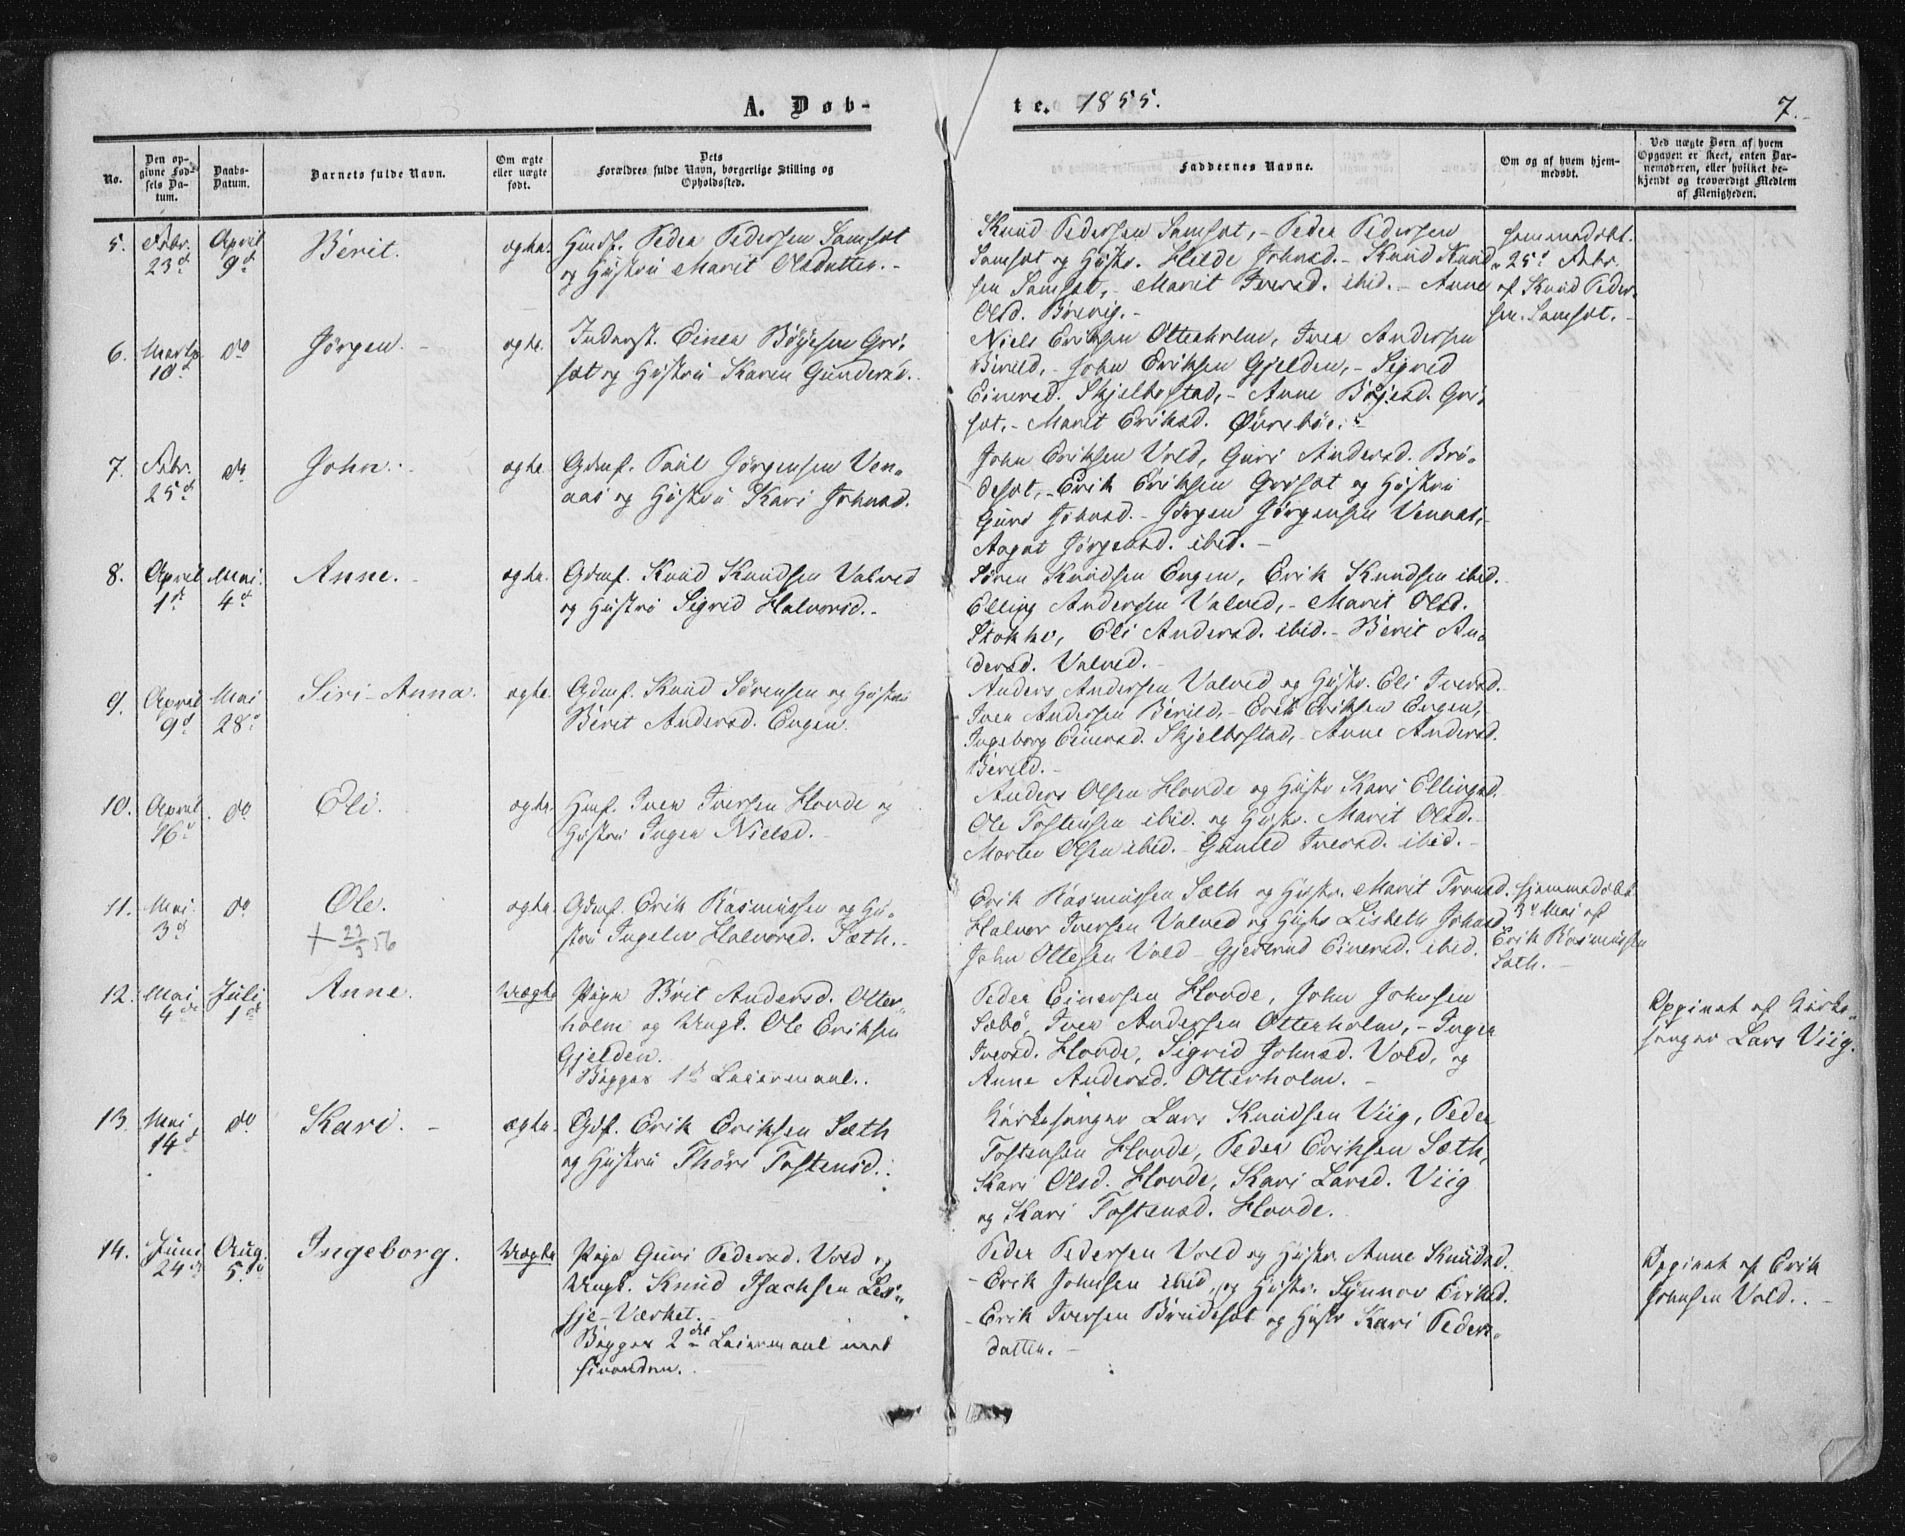 A. Døb-
te. 1855.
7.
No.
Den op-
givne Fød-
sels Da-
tum.
Daabs-
Datum.
Barnets fulde Navn.
Om ægte
eller uægte
født.
Dets
Forældres fulde Navn, borgerlige Stilling og
Opholdssted.
Faddernes Navne.
Om og af hvem hjem-
medøbt.
Ved uægte Børn af hvem
Opgaven er skeet, enten Bar-
nemoderen, eller hvilket be-
kjendt og troværdigt Medlem
af Menigheden.
5. Febr. 23d April 9d Berit. ægte. Huusf. Peder Pedersen Samsæt
og Hustru Marit Olsdatter. -
Knud Pedersen Samsæt, - Peder Pedersen
Samsæt og Hustr. Hilde Johnsd. - Knud Knud-
sen Samsæt, - Marit Iversd. ibid. - Anne
Olsd. Brevig. -
hjemmedøbt.
25d Febr.
af Knud Peder-
sen Samsæt. -
6. Marts 10d do Jørgen. - ægte. Inderst. Einer Bøyesen Gri-
sæt og Hustru Karen Gundersd.
Niels Eriksen Otterholm, Iver Andersen
Birild, - John Eriksen Gjelden, - Sigrid
Einersd. Skjelbostad, - Anne Bøjesd. Gri-
sæt. - Marit Eriksd. Øvrebøe. -
7. Febr. 25d do John. ægte. Gdmf. Paul Jørgensen Ven-
aas og Hustru Kari Johnsd.
John Eriksen Vold, Guri Andersd. Bru-
desæt, - Erik Eriksen Grisæt og Hustru
Guri Johnsd. - Jørgen Jørgensen Venaas,
Aagot Jørgensd. ibid. -
8. April 1d Mai 4d Anne. - ægte. Gdmf. Knud Knudsen Valved
og Hustru Sigrid Halvorsd. -
Søren Knudsen Engen, Erik Knudsen ibid.
Elling Andersen Valved, - Marit Olsd.
Stokke, Eli Andersd. ibid. - Berit An-
dersd. Valved. -
9. April 9d Mai 28d Siri-Anna. ægte. Gdmf. Knud Sørensen og Hustru
Berit Andersd. Engen.
Anders Andersen Valved og Hustr. Eli Iversd.
Iver Andersen Birild, - Erik Eriksen Engen,
Ingeborg Einersd. Skjelbostad, - Anne Andersd.
Birild. -
10. April 16d do Eli. ægte. Hmf. Iver Iversen Hovde og
Hustru Inger Nielsd. -
Anders Olsen Hovde og Hustr Kari Ellingsd.
Ole Tostensen ibid. og Hustr. Marit Olsd. -
Morten Olsen ibid. - Gunild Iversd. ibid. -
11. Mai 3d do Ole. ægte. Gdmf. Erik Rasmussen og Hu-
+ 56 stru Ingeler Halvorsd. Sæth. -
Erik Rasmussen Sæth og Hustr. Marit Tronsd.
Halvor Iversen Valved og Hustr Lisbeth Johnsd
John Ottesen Vold - Gjertrud Einersd. ibid.
hjemmedøbt
3d Mai af
Erik Rasmussen
Sæth. -
12. Mai 4de Juli 1ste Anne. Uægte Pige Brit Andersd. Otter-
holm og Ungk. Ole Eriksen
Gjelden.
Begges 1ste Leiermaal.
Peder Einersen Hovde, John Johnsen
Sæbø, Iver Andersen Otterholm, - Inger
Iversd. Hovde, Sigrid Johnsd. Vold, og
Anne Andersd. Otterholm. -
Opgivet af Kirke-
sanger Lars Viig.
13. Mai 14d do Kari. - ægte. Gdf. Erik Eriksen Sæth
og Hustru Thöri Tostensd.
Kirkesanger Lars Knudsen Viig, Peder
Tostensen Hovde, Peder Eriksen Sæth,
Kari Olsd. Hovde, Kari Larsd. Viig
og Kari Tostensd. Hovde.
14. Juni 24de Aug. 5. Ingeborg. Uægte Pige Guri Pedersd. Vold og
Ungk. Knud Isachsen Les-
sje-Værket. -
Begges 2det Leiermaal med
hinanden.
Peder Pedersen Vold og Hustr. Anne Knudsd.
- Erik Johnsen ibid, og Hustr. Synnov Eriksd.
- Erik Iversen Brudesæt og Hustr Kari Peders-
datter. -
Opgivet af Erik
Johnsen Vold. -